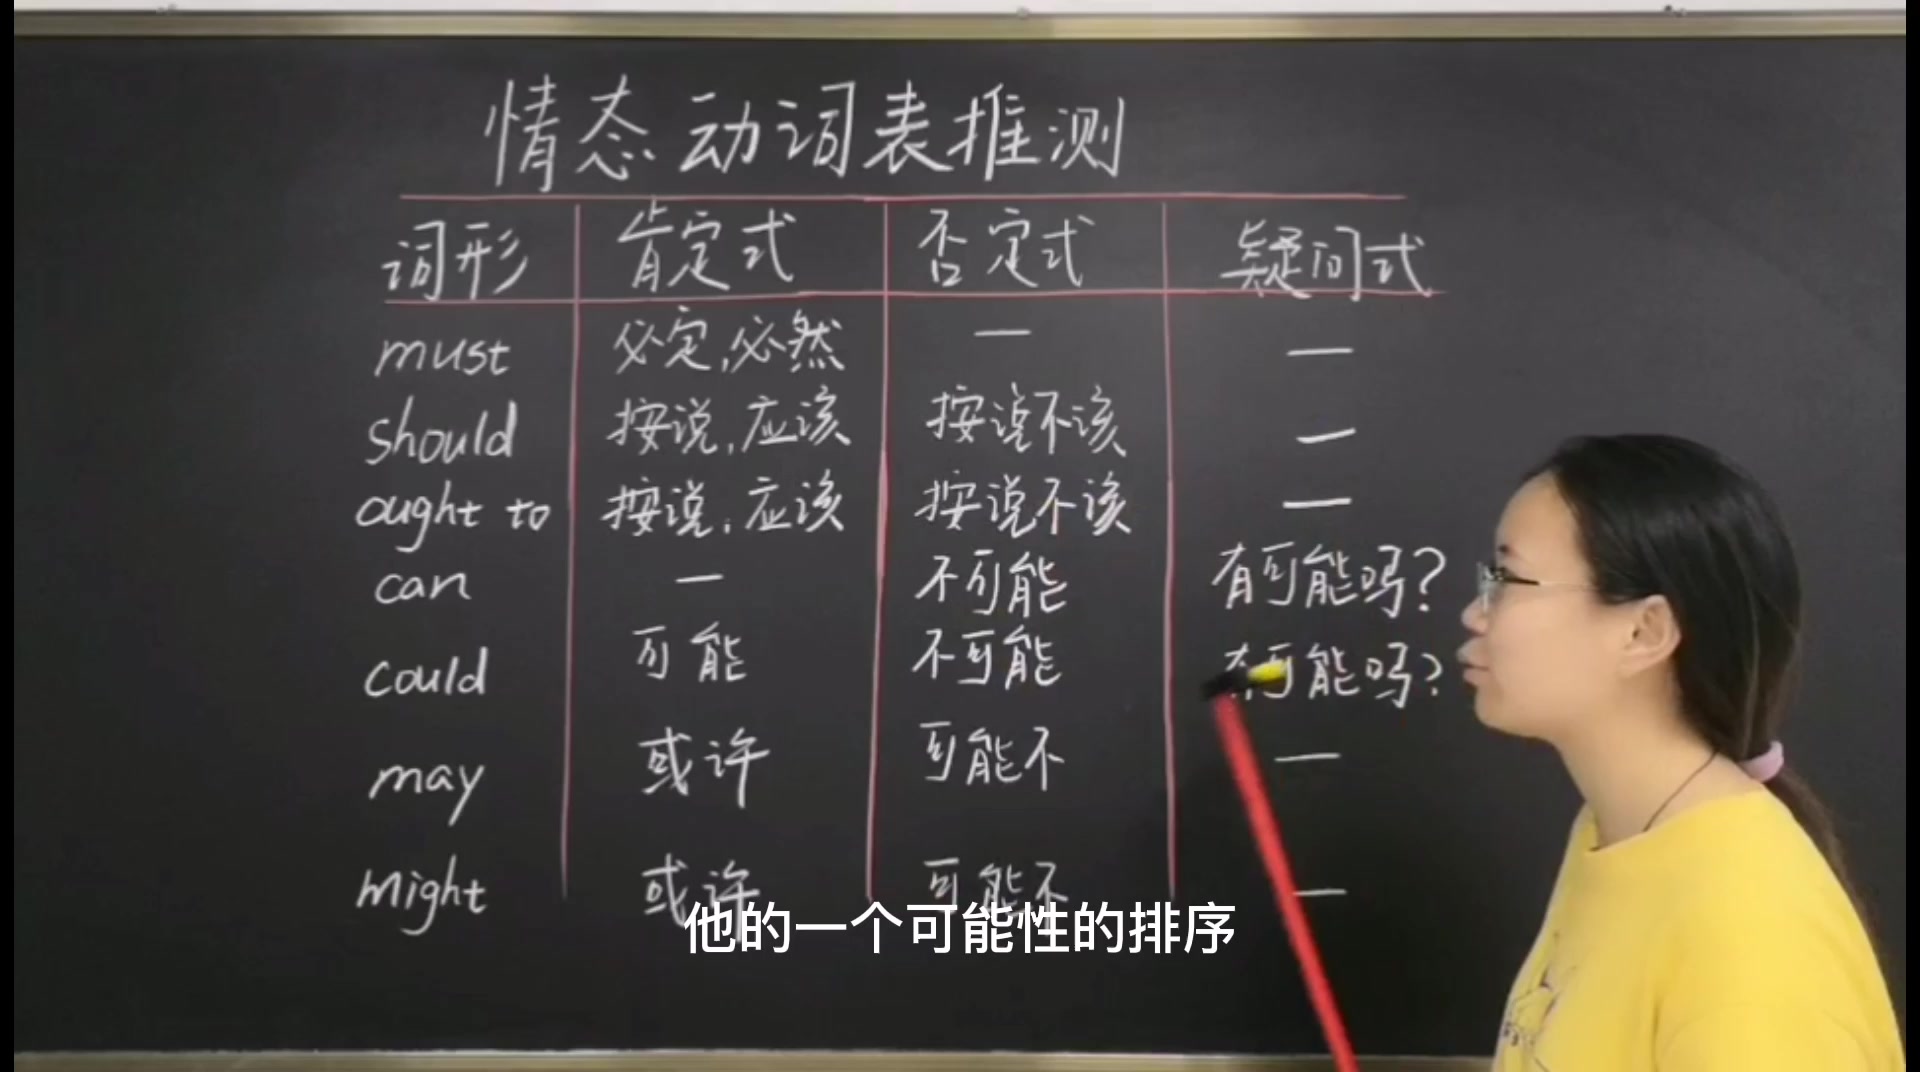 情态动词表推测
词形 肯定式 否定式 疑问式
must 必定,必然 — —
should 按说,应该 按说不该 —
ought to 按说,应该 按说不该 —
can — 不可能 有可能吗?
could 可能 不可能 有可能吗?
may 或许 可能不 —
might 或许 可能不 —
他的一个可能性的排序